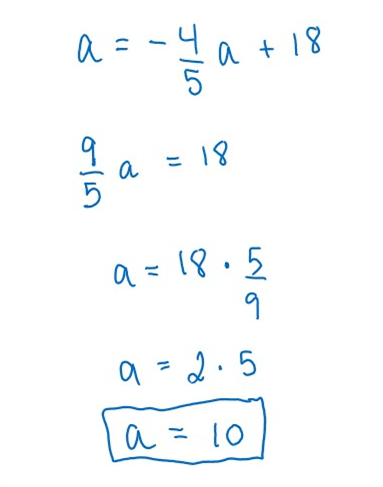 a = - 4/5 a + 18
9/5 a = 18
a = 18 · 5/9
a = 2 · 5
a = 10